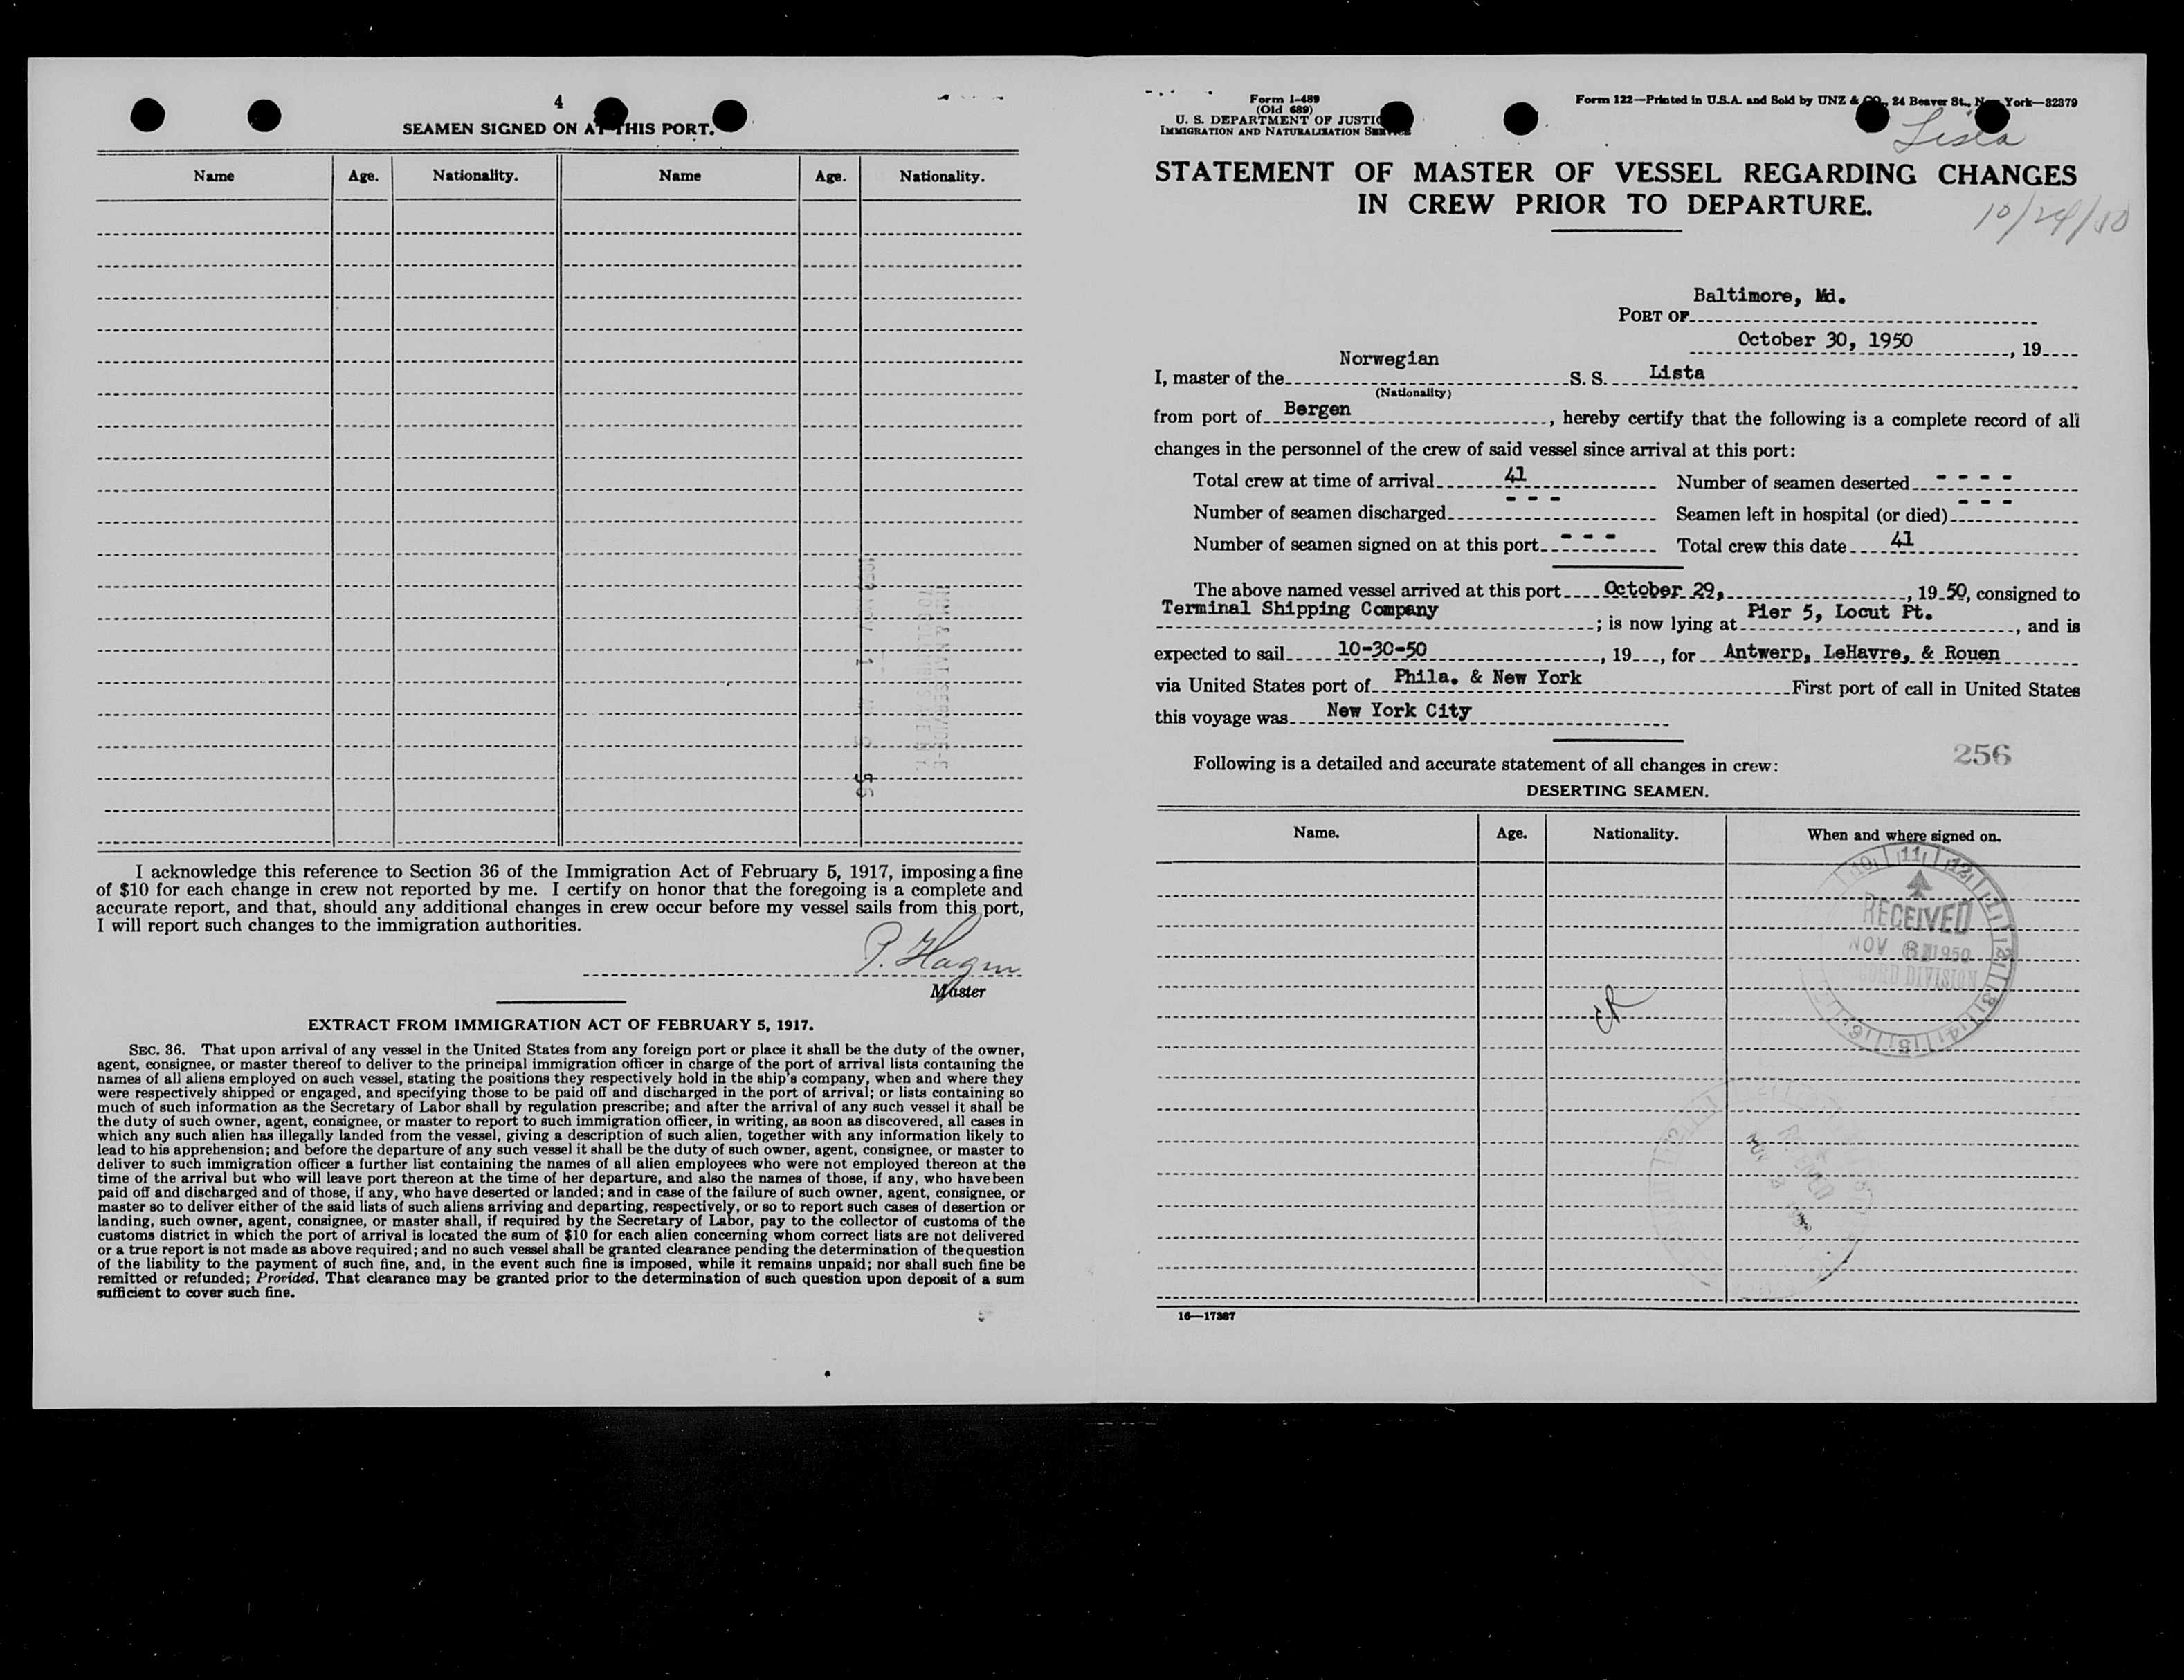 4
SEAMEN SIGNED ON AT THIS PORT.
Name Age. Nationality. Name Age. Nationality.
I acknowledge this reference to Section 36 of the Immigration Act of February 5, 1917, imposing a fine
of $10 for each change in crew not reported by me. I certify on honor that the foregoing is a complete and
accurate report, and that, should any additional changes in crew occur before my vessel sails from this port,
I will report such changes to the immigration authorities.
P. Hagen
Master
EXTRACT FROM IMMIGRATION ACT OF FEBRUARY 5, 1917.
SEC. 36. That upon arrival of any vessel in the United States from any foreign port or place it shall be the duty of the owner,
agent, consignee, or master thereof to deliver to the principal immigration officer in charge of the port of arrival lists containing the
names of all aliens employed on such vessel, stating the positions they respectively hold in the ship's company, when and where they
were respectively shipped or engaged, and specifying those to be paid off and discharged in the port of arrival; or lists containing so
much of such information as the Secretary of Labor shall by regulation prescribe; and after the arrival of any such vessel it shall be
the duty of such owner, agent, consignee, or master to report to such immigration officer, in writing, as soon as discovered, all cases in
which any such alien has illegally landed from the vessel, giving a description of such alien, together with any information likely to
lead to his apprehension; and before the departure of any such vessel it shall be the duty of such owner, agent, consignee, or master to
deliver to such immigration officer a further list containing the names of all alien employees who were not employed thereon at the
time of the arrival but who will leave port thereon at the time of her departure, and also the names of those, if any, who have been
paid off and discharged and of those, if any, who have deserted or landed; and in case of the failure of such owner, agent, consignee, or
master so to deliver either of the said lists of such aliens arriving and departing, respectively, or so to report such cases of desertion or
landing, such owner, agent, consignee, or master shall, if required by the Secretary of Labor, pay to the collector of customs of the
customs district in which the port of arrival is located the sum of $10 for each alien concerning whom correct lists are not delivered
or a true report is not made as above required; and no such vessel shall be granted clearance pending the determination of the question
of the liability to the payment of such fine, and, in the event such fine is imposed, while it remains unpaid; nor shall such fine be
remitted or refunded; Provided, That clearance may be granted prior to the determination of such question upon deposit of a sum
sufficient to cover such fine.
Form I-489
(Old 689)
U. S. DEPARTMENT OF JUSTICE
IMMIGRATION AND NATURALIZATION SERVICE
Form 122—Printed in U.S.A. and Sold by UNZ & CO., 24 Beaver St., New York—32379
Lista
STATEMENT OF MASTER OF VESSEL REGARDING CHANGES
IN CREW PRIOR TO DEPARTURE.
10/24/50
Baltimore, Md.
PORT OF
October 30, 1950 , 19
I, master of the Norwegian S. S. Lista
(Nationality)
from port of Bergen , hereby certify that the following is a complete record of all
changes in the personnel of the crew of said vessel since arrival at this port:
Total crew at time of arrival 41 Number of seamen deserted - - - -
Number of seamen discharged - - - Seamen left in hospital (or died) - - -
Number of seamen signed on at this port - - - Total crew this date 41
The above named vessel arrived at this port October 29, , 19 50, consigned to
Terminal Shipping Company ; is now lying at Pier 5, Locut Pt. , and is
expected to sail 10-30-50 , 19 , for Antwerp, LeHavre, & Rouen
via United States port of Phila. & New York First port of call in United States
this voyage was New York City
256
Following is a detailed and accurate statement of all changes in crew:
DESERTING SEAMEN.
Name. Age. Nationality. When and where signed on.
RECEIVED
NOV 1950
DIVISION
16—17387